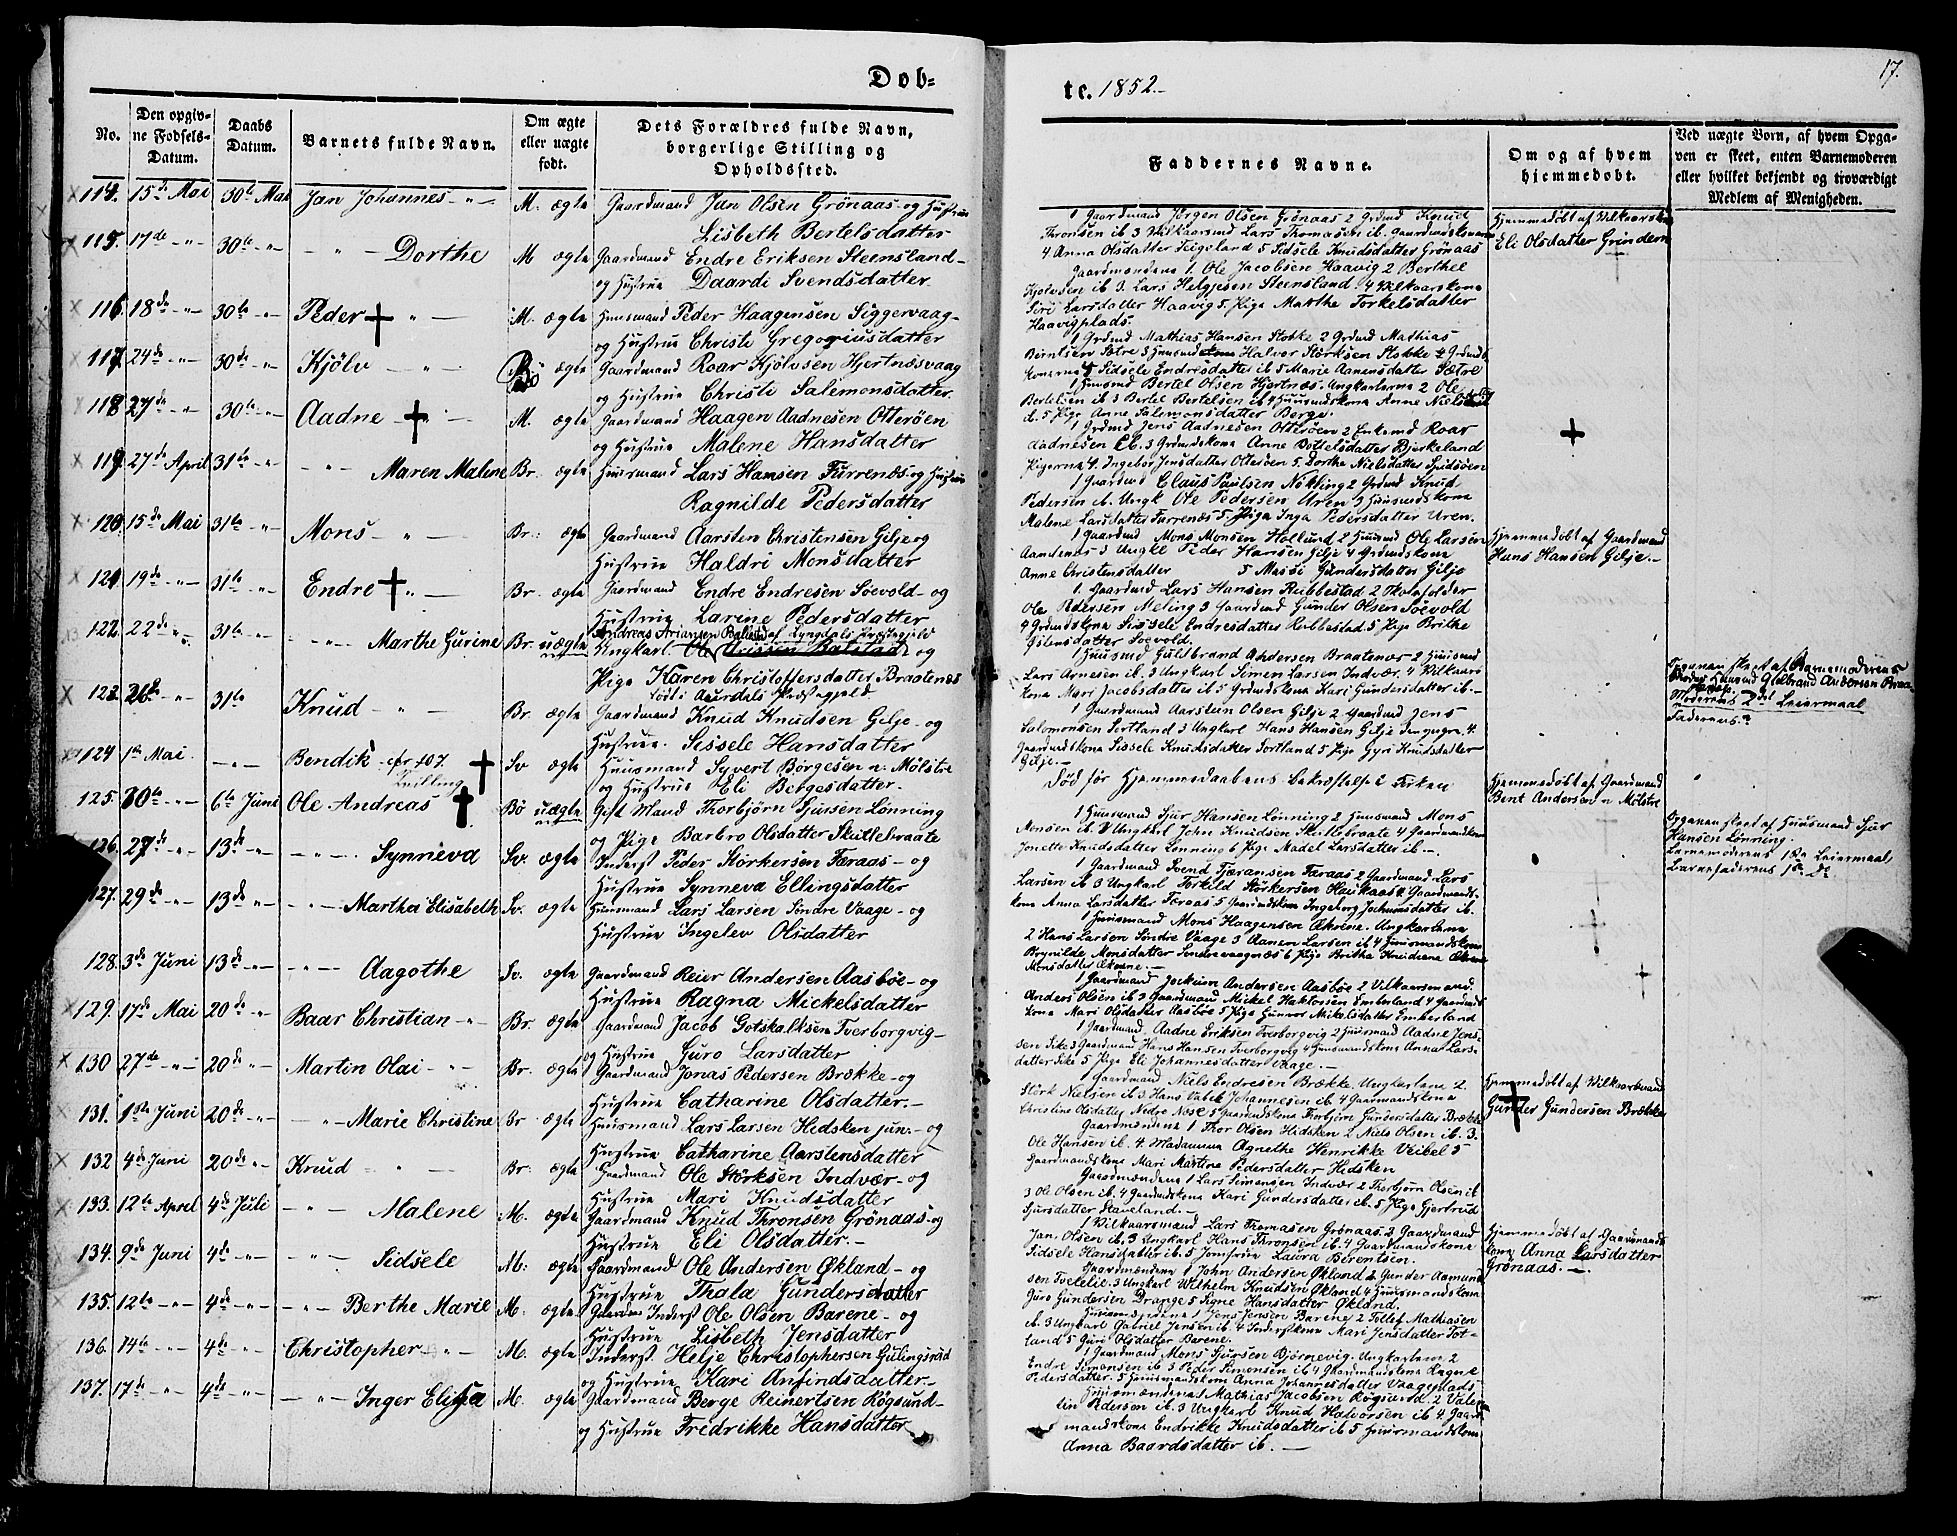 Dob=
No.
Den opgiv-
ne Fodsels-
Datum.
Daabs
Datum.
Barnets fulde Navn.
Om ægte
eller uægte
født.
Dets Forældres fulde Navn,
borgerlige Stilling og
Opholdssted.
114. 15de Mai 30te Mai Jan Johannes - " - M. ægte Gaardmand Jan Olsen Grönaas og Hustrue
Lisbeth Bertelsdatter
115. 17de - " - 30te - " - - " - Dorthe M ægte Gaardmand Endre Eriksen Steensland -
og Hustrue Daardi Svendsdatter
116. 18de - " - 30te - " - Peder - " - M. ægte Huusmand Peder Haagensen Siggervaag -
og Hustrue Christi Gregoriusdatter
117. 24de - " - 30te - " - Kjölv - " - ægte Gaardmand Roar Kjölvsen Hjertnæsvaag
og Hustrue Christi Salemonsdatter
118 27de - " - 30te - " - Aadne - " - M. ægte Gaardmand Haagen Aadnesen Otteröen
og Hustrue Malene Hansdatter
119. 27de April 31te - " - - " - Maren Malene Br. ægte Huusmand Lars Hansen Furrenæs og Hustrue
Ragnilde Pedersdatter
120. 15de Mai 31te - " - Mons - " - Br. ægte Gaardmand Aarsten Christensen Gilje og
Hustrue Haldri Monsdatter
121. 19de - " - 31te - " - Endre - " - Br. ægte Gaardmand Endre Endresen Söevold - og
Hustrue Larine Pedersdatter
Andreas Ariansen af Lyngdals Præstegjeld
122. 22de - " - 31te - " - - " - Marthe Gurine Br. uægte Ungkarl Ole og
Pige Karen Christoffersdatter Braatenæs
født i Aurdals Præstegjeld
123. 26de - " - 31te Knud - " - Br. ægte Gaardmand Knud Knudsen Gilje - og
Hustrue Sissele Hansdatter
124 1ste Mai - " - Bendik cfr 107. Sv ægte Huusmand Syvert Börgesen n. Mölstre
Tvilling og Hustrue Eli Bergesdatter.
125. 30te - " - 6te Juni Ole Andreas Bö uægte Gift Mand Thorbjörn Sjursen Lönning
og Pige Barbro Olsdatter Skittlebraate
126. 27de - " - 13de - " - - " - Synneva Sv. ægte Inderst Peder Störkersen Færaas - og
Hustrue Synneva Ellingsdatter
127. 29de - " - 13de - " - - " - Martha Elisabeth Sv. ægte Huusmand Lars Larsen Söndre Vaage - og
Hustrue Ingelev Olsdatter
128. 3de Juni 13de - " - - " - Aagothe Sv. ægte Gaardmand Reier Andersen Aasböe - og
Hustrue Ragna Mickelsdatter
129. 17de Mai 20de - " - Baar Christian - " - Br. ægte Gaardmand Jacob Gotskalksen Tverborgvig -
og Hustrue Guro Larsdatter
130 27de - " - 20de - " - Martin Olai - " - Br. ægte Gaardmand Jonas Pedersen Brække - og
Hustrue Catharine Olsdatter. -
131. 1ste Juni 20de - " - - " - Marie Christine Br ægte Huusmand Lars Larsen Hidsken jun. - og
Hustrue Catharine Aarstensdatter
132 4de Juni 20de - " - Knud - " - Br. ægte Gaardmand Ole Störksen Indvær - og
Hustrue Mari Knudsdatter
133. 12te April 4de Juli - " - Malene M. ægte Gaardmand Knud Thronsen Grönaas - og
Hustrue Eli Olsdatter. -
134. 9de Juni 4de - " - - " - Sidsele M. ægte Gaardmand Ole Andersen Økland - og
Hustrue Thala Gundersdatter
135. 12te - " - 4de - " - - " - Berthe Marie M. ægte Inderst Ole Olsen Barene - og
Hustrue Lisbeth Jensdatter
136. 14te - " - 4de - " - Christopher - " - M. ægte Inderst. Helje Christophersen
og Hustrue Kari Anfindsdatter. -
137. 17de - " - 4de - " - - " - Inger Elisa M. ægte Gaardmand Berge Reinertsen Røgsund -
og Hustrue Fredrikke Hansdatter
te. 1852. -
17.
Faddernes Navne.
Om og af hvem
hjemmedobt.
Ved uægte Born, af hvem Opga-
ven er skeet, enten Barnemoderen
eller hvilket bekjendt og troværdigt
Medlem af Menigheden.
1 Gaardmand Jörgen Olsen Grönaas 2 Grdmd Knud
Thronsen ib 3 Vilkaarsmd Lars Thomasen ib. Gaardmandskonerne
4 Anna Olsdatter Teigeland 5 Sidsele Knudsdatter Grönaas
Hjemmedöbt af Vilkaarskone
Eli Olsdatter Grindem
Gaardmændene 1. Ole Jacobsen Haavig 2 Berthel
Kjolvsen ib 3. Lars Helgjesen Steensland 4 Vilkaarskone
Siri Larsdatter Haavig 5. Pige Marthe Torkelsdatter
Haavigplads.
1 Grdmd Mathias Hansen Stokke 2 Grdmd Mathias
Berntsen Sætre 3 Huusmd Halvor Störksen Stokke 4 Grdmds
konerne Sidsele Endresdatter ib 5 Marie Aamensdatter Sætre
1 Huusmd Bertel Olsen Hjertnæs. Ungkarlerne 2 Ole
Bertelsen ib 3 Bertel Bertelsen ib 4 Huusmdskone Anne
5 Pige Anne Salemonsdatter Borge.
1 Grdmd Jens Aadnesen Otteröen 2 Enkemd Roar
Aadnesen ib. 3 Grdmdskone Anne Bottelsdatter Bjerkeland
Pigerne 4. Ingebor Jensdatter Otteröen 5. Dorthe Nielsdatter Spidsöen
1 Gaardmd Claus Paulsen Nökling 2 Grdmd Knud
Pedersen ib. Ungk Ole Pedersen Uren 3 Huusmdskone
Malene Larsdatter Furrenæs 5 Pige Inga Pedersdatter Uren.
1 Gaardmd Mons Monsen Hollund 2 Huusmd Ole Larsen
Aamtenæs 3 Ungkl Peder Hansen Gilje 4 Grdmdskone
Anne Christensdatter 5 Massi Gundersdatter Gilje
Hjemmedöbt af Gaardmand
Hans Hansen Gilje. -
1. Gaardmd Lars Hansen Rubbestad 2 Skoleholder
Ole Pedersen Meling 3 Gaardmd Gunder Olsen Söevold
4 Grdmdskone Sissele Endresdatter Rubbestad 5 Pige Brithe
Söevold
1 Huusmd Guldbrand Andersen Braatenæs 2 Huusmd
Lars Arnesen ib. 3 Ungkarl Simen Larsen Indvær. 4 Vilkaars
kone Mari Jacobsdatter ib 5 Grdmdskone Kari Gundersdatter ib. -
Opgaven skeet af Barnemoderens
Gulbrand Andersen
Moderens 2det Leiermaal
Faderens
1 Gaardmand Aarsten Olsen Gilje 2 Gaardmd Jens
Salomonsen Sortland 3 Ungkarl Hans Hansen Gilje den yngre. 4
Gaardmdskone Sissele Knudsdatter Sortland 5 Pige Gyri Knudsdatter
Gilje. -
Død før Hjemmedaabens Bekræftelse i Kirken
Hjemmedöbt af Gaardmand
Bent Andersen n Mölstre
1 Huusmand Sjur Hansen Lönning 2 Huusmand Mons
Monsen ib. 3 Ungkarl John Knudsen Skitlebraate 4 Gaardmandskone
Jonette Knudsdatter Lönning 6 Pige Madel Larsdatter ib. -
Opgaven skeet af Huusmand Sjur
Hansen Lönning.
Barnemoderens 1ste Leiermaal,
Barnefaderens 1ste do
1 Gaardmand Svend Tjæransen Færaas 2 Gaardmand Lars
Larsen ib 3 Ungkarl Torkild Störkersen Haukaas 4 Gaardmands
kone Anna Larsdatter Færaas 5 Gaardmandskone Ingeborg Jochumsdatter ib.
1 Huusmand Mons Haagensen Økrene. Ungkarlene
2 Hans Larsen Söndre Vaage 3 Aamen Larsen ib. 4 Huusmandskone
Brynilde Monsdatter Søndrevaagnæs 6 Pige Brithe
Monsdatter Økrene. -
1 Gaardmand Jockum Andersen Aasböe 2 Vilkaarsmand
Anders Olsen ib 3 Gaardmand Mickel Haktorsen Emberland 4 Gaardmands
kone Mari Olsdatter Aasböe 5 Pige Gunvor Mikelsdatter Emberland
1 Gaardmand Aadne Eriksen Tverborgvig 2 Huusmand Aadne Jens-
sen Eike 3 Gaardmand Hans Hansen Tverborgvig 4 Huusmandskone Anna Lars-
datter Eike 5 Pige Eli Johannesdatter Vaage. -
Gaardmand Niels Endresen Brække. Ungkarlene 2.
Störk Nielsen ib 3 Hans Johannesen ib 4 Gaardmandskone
Caroline Olsdatter Nedre Næse 5 Gaardmandskone Thorbjörn Gundersdatter Brække
Hjemmedöbt af Vilkaarsmand
Gunder Gundersen Brække
Gaardmændene 1 Thor Olsen Hidsken 2 Niels Olsen ib. 3.
Ole Hansen ib. 4. Madamerne Agnethe Henrikke Veibel 5
Gaardmandskone Mari Martine Pedersdatter Hidsken
Gaardmændene 1 Lars Simonsen Indvær 2 Thorbjörn Olsen ib
3 Ole Olsen ib. 4 Gaardmdskone Kari Gundersdatter ib. 5 Pige Gjertrud
Sjursdatter Staveland. -
1 Vilkaarsmand Lars Thomasen Grönaas. 2 Gaardmand
Jan. Olsen ib. 3 Ungkarl Hans Thronsen ib. 4 Gaardmandskone
Sidsele Hansdatter ib. 5 Jomfrue Laura Berentsen.
Hjemmedöbt af Gaardmands-
kone Anna Larsdatter
Grönaas. -
Gaardmændene 1 John Andersen Økland 2 Gunder Aamund
sen 3 Ungkarl Wilhelm Knudsen Økland 4 Huusmandskone
Guro Gundersen Drange 5 Signe Hansdatter Økland.
1 Jens Jensen Barene 2 Tollef Mathiasen
ib. 3 Ungkarl Gabriel Jensen ib. 4 Inderstkone Mari Jensdatter Tot-
land 5 Guri Olsdatter Barene.
1 Gaardmand Mons Sjursen Björnevig. Ungkarlene 2
Endre Simonsen ib 3 Peder Simonsen ib 4 Gaardmandskone Ragne
Pedersdatter. 5 Huusmandskone Anna Johannesdatter Vaageplads
Huusmændene Mathias Jacobsen Røgsund. 2 Valen-
tin Pedersen ib. 3 Ungkarl Knud Halvorsen ib 4 Gaard-
mandskone Endrikke Knudsdatter ib 5 Huusmandskone
Anna Baardsdatter ib. -